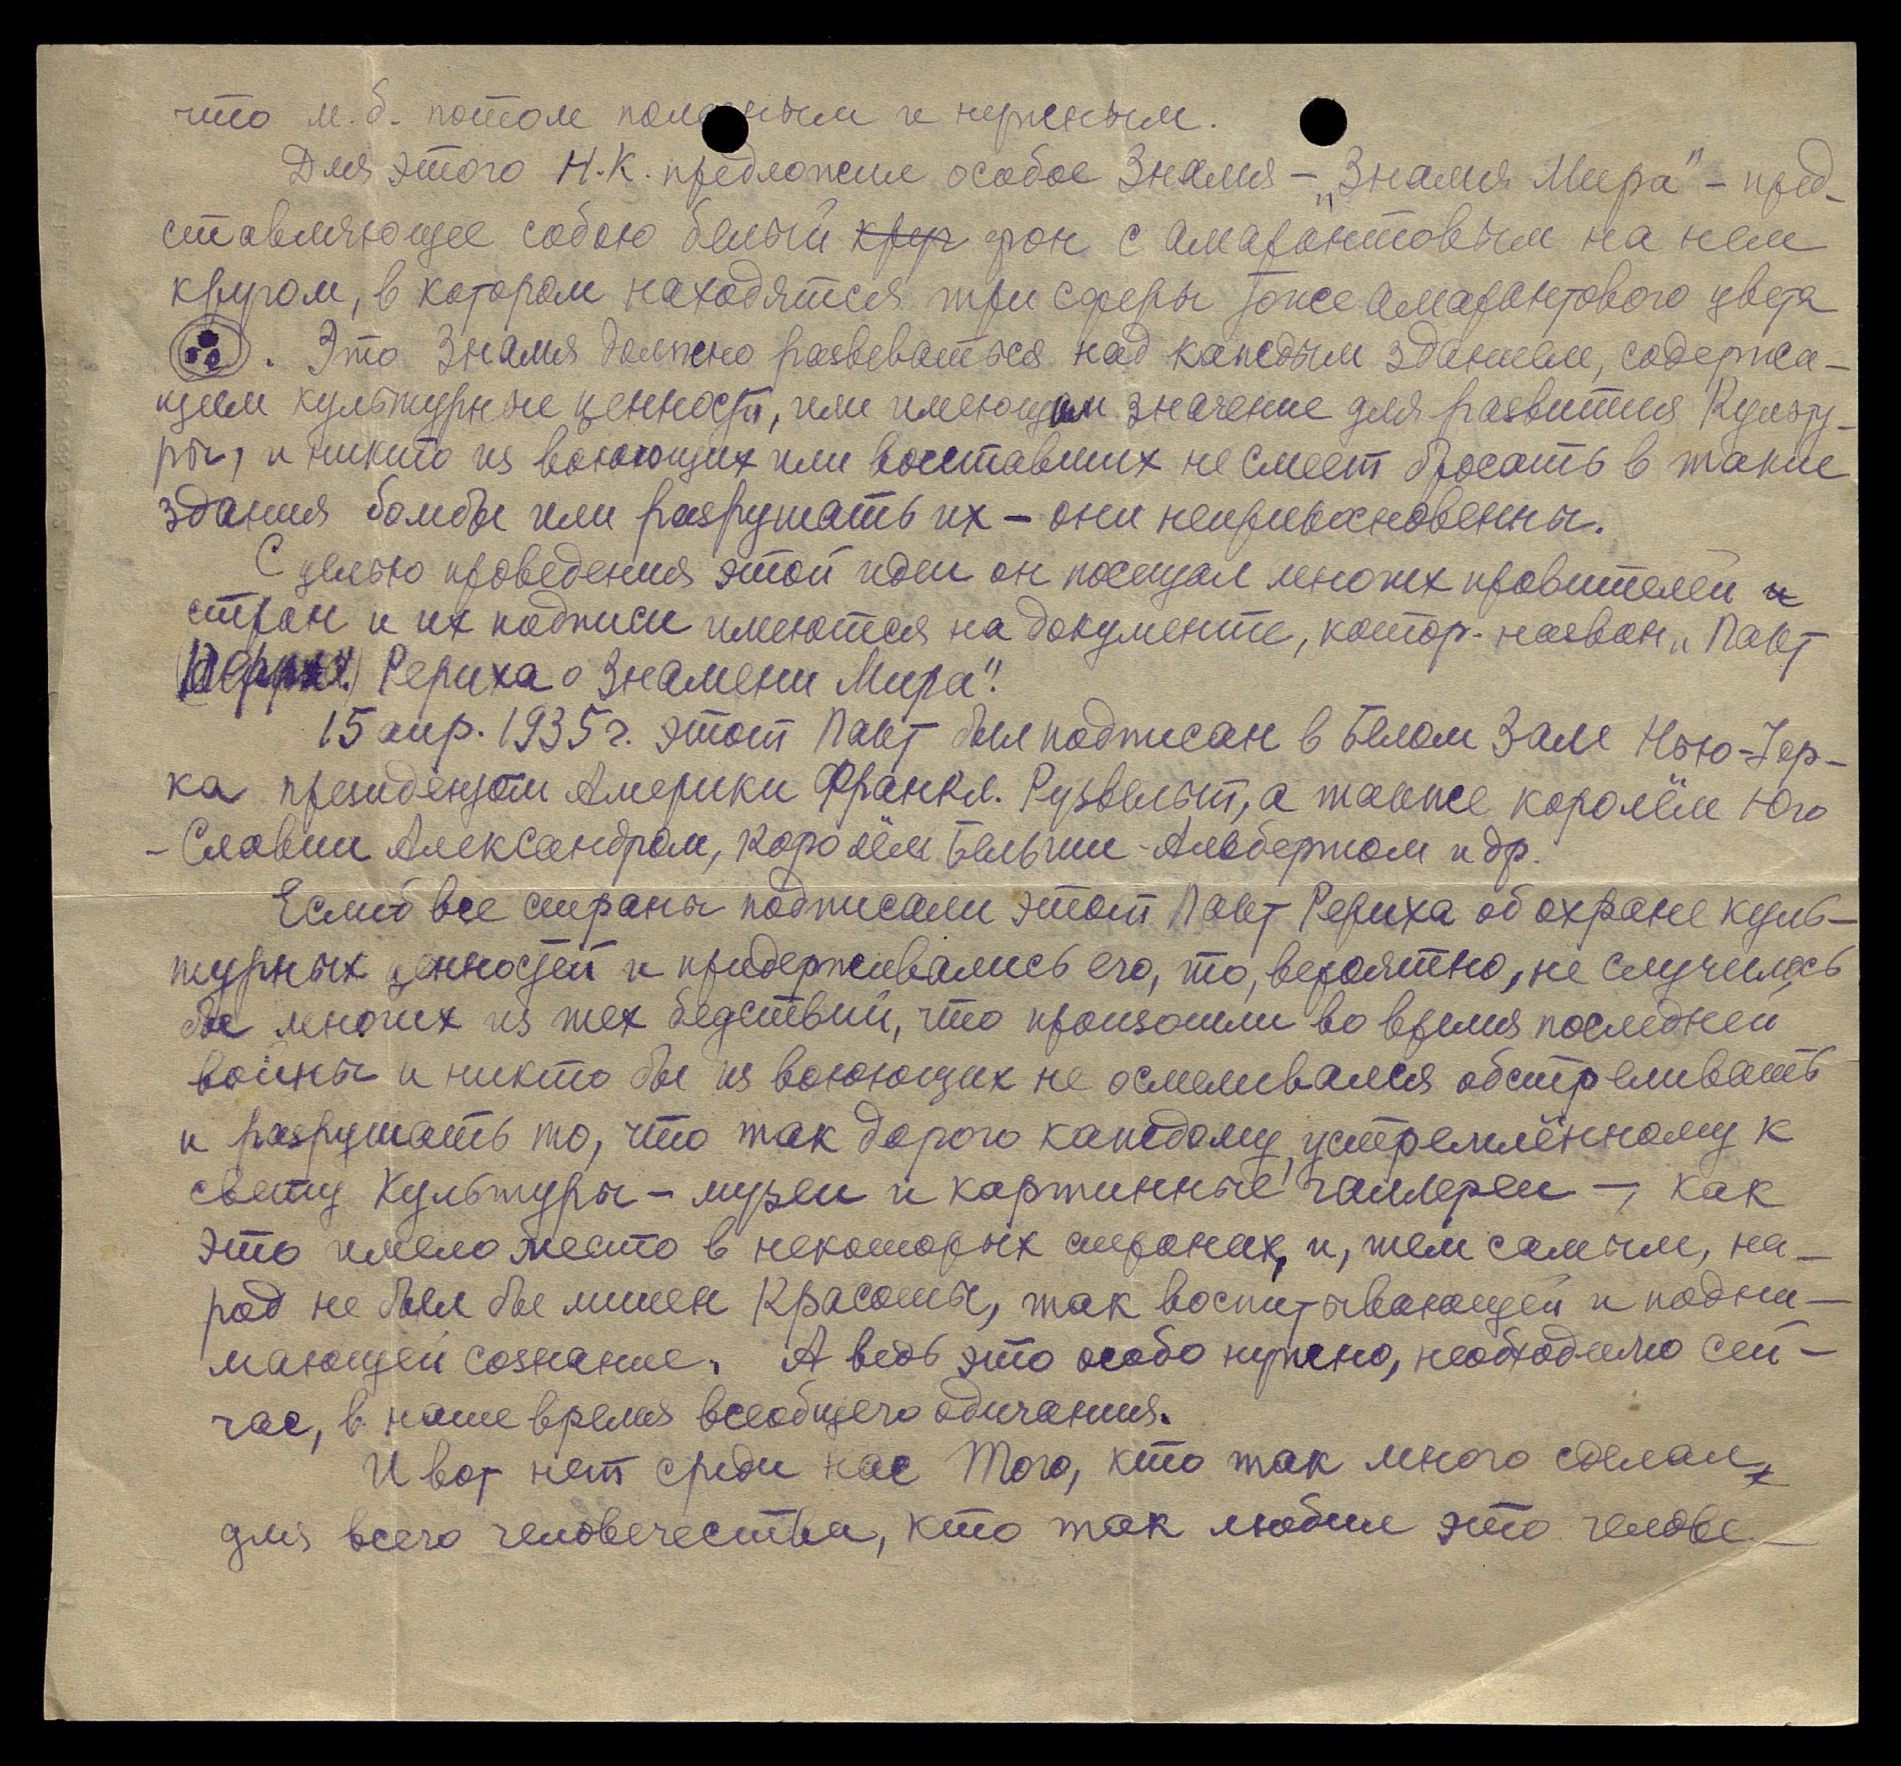 что м.б. потом полезным и нужным.
Для этого Н.К. предложил особое Знамя – „Знамя Мира" – пред-
ставляющее собою белый круг фон с амарантовым на нем
кругом, в котором находятся три сферы тоже амарантового цвета
. Это Знамя должно развеваться над каждым зданием, содержа-
щем культурные ценности, или имеющем значение для развития Культу-
ры, и никто из воюющих или восставших не смеет бросать в такие
здания бомбы или разрушать их – они неприкосновенны.
С целью проведения этой идеи он посещал многих правителей и
стран и их подписи имеются на документе, котор. назван „Пакт
Рериха о Знамени Мира".
15 апр. 1935 г. этот Пакт был подписан в Белом Зале Нью-Йор-
ка президентом Америки Франкл. Рузвельт, а также королём Юго
-Славии Александром, королём Бельгии Альбертом и др.
Если б все страны подписали этот Пакт Рериха об охране куль-
турных ценностей и придерживались его, то, вероятно, не случилось
бы многих из тех бедствий, что произошли во время последней
войны и никто бы из воюющих не осмеливался обстреливать
и разрушать то, что так дорого каждому, устремлённому к
свету Культуры – музеи и картинные галлереи –, как
это имело место в некоторых странах, и, тем самым, на-
род не был бы лишен Красоты, так воспитывающей и подни-
мающей сознание. А ведь это особо нужно, необходимо сей-
час, в наше время всеобщего одичания.
И вот нет среди нас Того, кто так много сделал
для всего человечества, кто так любил это челове-